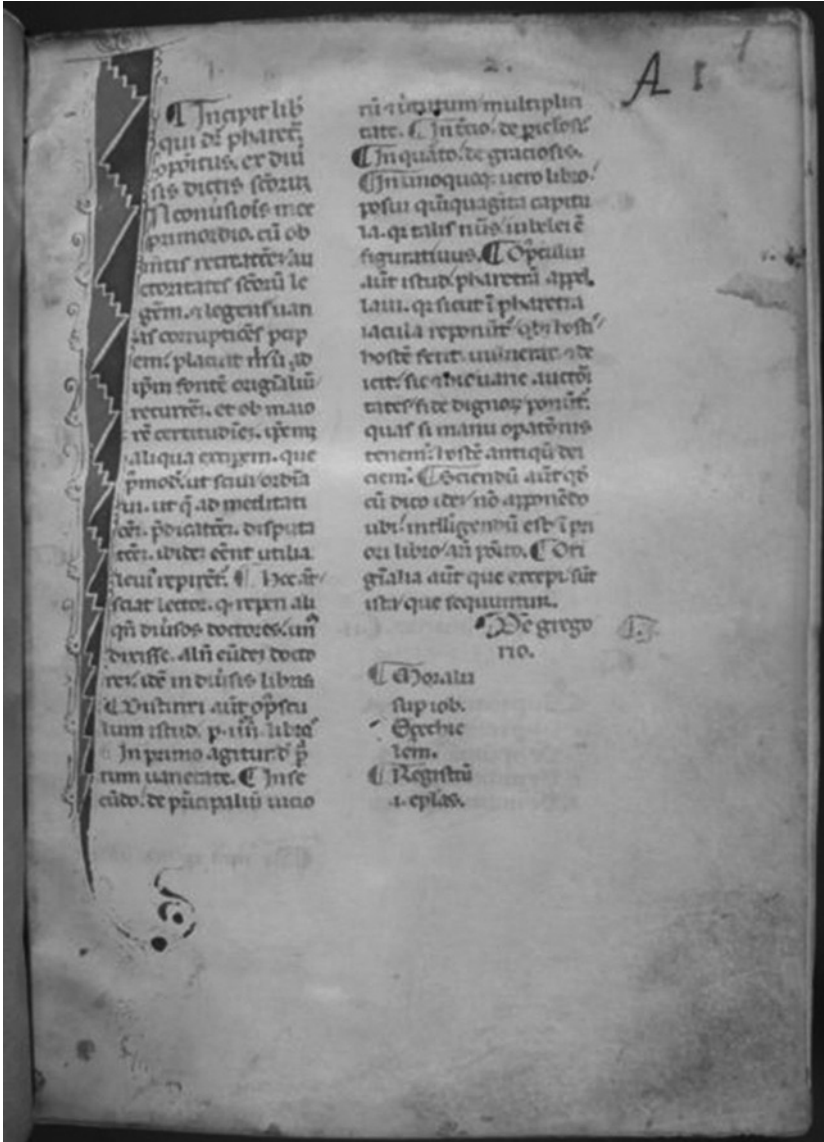 A I 1
2.
¶ Incipit lib̄
qui dr̄ pharet̄
opōitus. ex diū
sis dictis sc̄oꝝ
In conūsiōis mee
primordio. cū ob
mētis recreat̄
ctoritates sc̄oꝝ le
gēm. ⁊ legens uari
as corruptiōēs ꝑcip
em. placuit m̄ ad
ip̄m fontē origīaliū
recurrē. et ob maio
rē certitudīeꝫ.
aliqua excip̄em. que
p̄modū ut sciui ordīa
ui. ut q̄ ad meditati
ōeꝫ. p̄dicatōeꝫ. disputa
tōeꝫ. ibideꝫ eēnt utilia
leui᷒ repirēt̄. ¶ hoc aūt
sciat lector. ꝙ reperi ali
qn̄ diuͥsos doctores. un̄
dixisse. Aliī eūdeꝫ docto
reꝫ. idē in diūsis libris
¶ Distinxi aūt op̄scu
lum istud. p. iiii. libꝛos
In primo agitur d̄ p̄
tum uarietate. ¶ In se
cūdo. de pͥncipaliū uicio
rū ⁊ ūtutum multiplici
tate. ¶ In t̄cio. de
¶ In quāto. de graciosis.
¶ In unoquoqꝫ uero libro.
posui qͥnquagīta capitu
la. qꝛ talis nūs iubelei ē
figuratiuus. ¶ Opͥculū
aūt istud pharetrā appel
laui. qꝛ sicut ī pharetra
iacula reponūt̄ qͥbꝫ hosti
hostē ferit. uulnerat ⁊ de
icit. sic ⁊ hic uarie auctoͥ
tates fide dignoꝝ ponūt̄.
quas si manu opatōnis
tenem. hostē antiqū dei
ciem. ¶ Sciendū aūt qd̄
cū dico ideꝫ nō apponēdo
ubi. intlligendū est ī pri
ori libro an̄ poͥto. ¶ Ori
gīalia aūt que excepi sūt
ista que sequuntur.
De grego
rio.
1.
¶ Moraliū
sup iob.
¶ Ezechie
lem.
¶ Registrū
i. ep̄las.